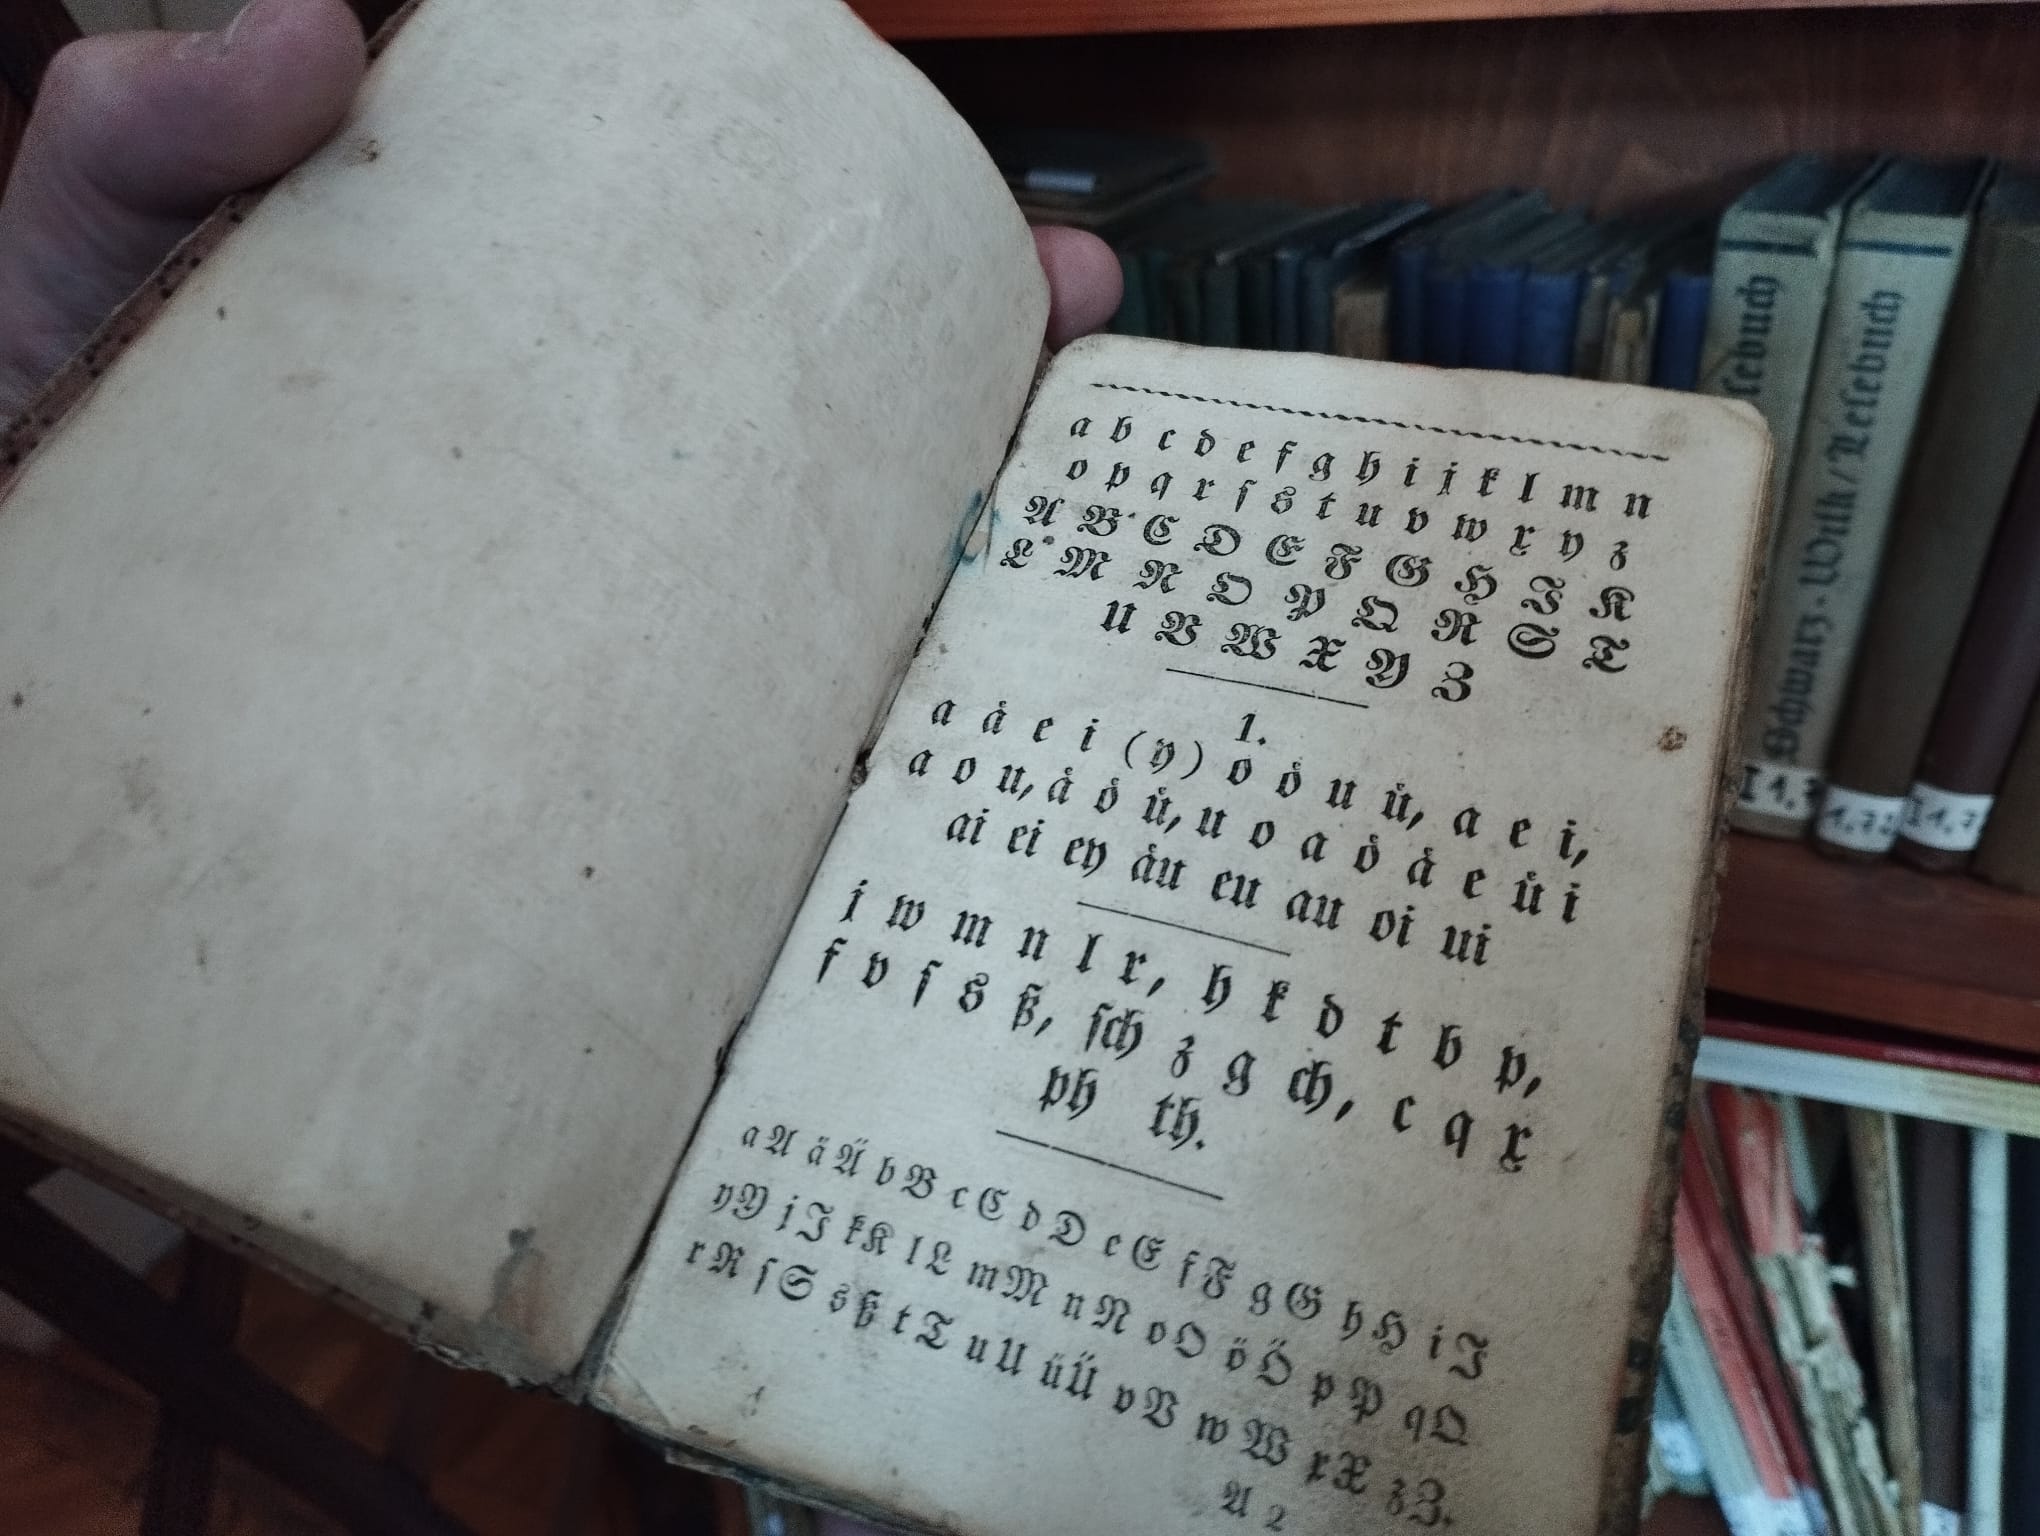 a b c d e f g h i j k l m n
o p q r ſ s t u v w x y z
A B C D E F G H I K
L M N O P Q R S T
U V W X Y Z
1.
a aͤ e i (y) o oͤ u uͤ, a e i,
a o u, aͤ oͤ uͤ, u o a oͤ aͤ e uͤ i
ai ei ey aͤu eu au oi ui
j w m n l r, h k d t b p,
f v ſ s ß, ſch z g ch, c q x
ph th.
a A ä Ä b B c C d D e E f F g G h H i I
y Y j J k K l L m M n N o O ö Ö p P q Q
r R ſ S s ß t T u U ü Ü v V w W x X z Z.
A 2
Schwarz-Wilk/Leſebuch
ſebuch